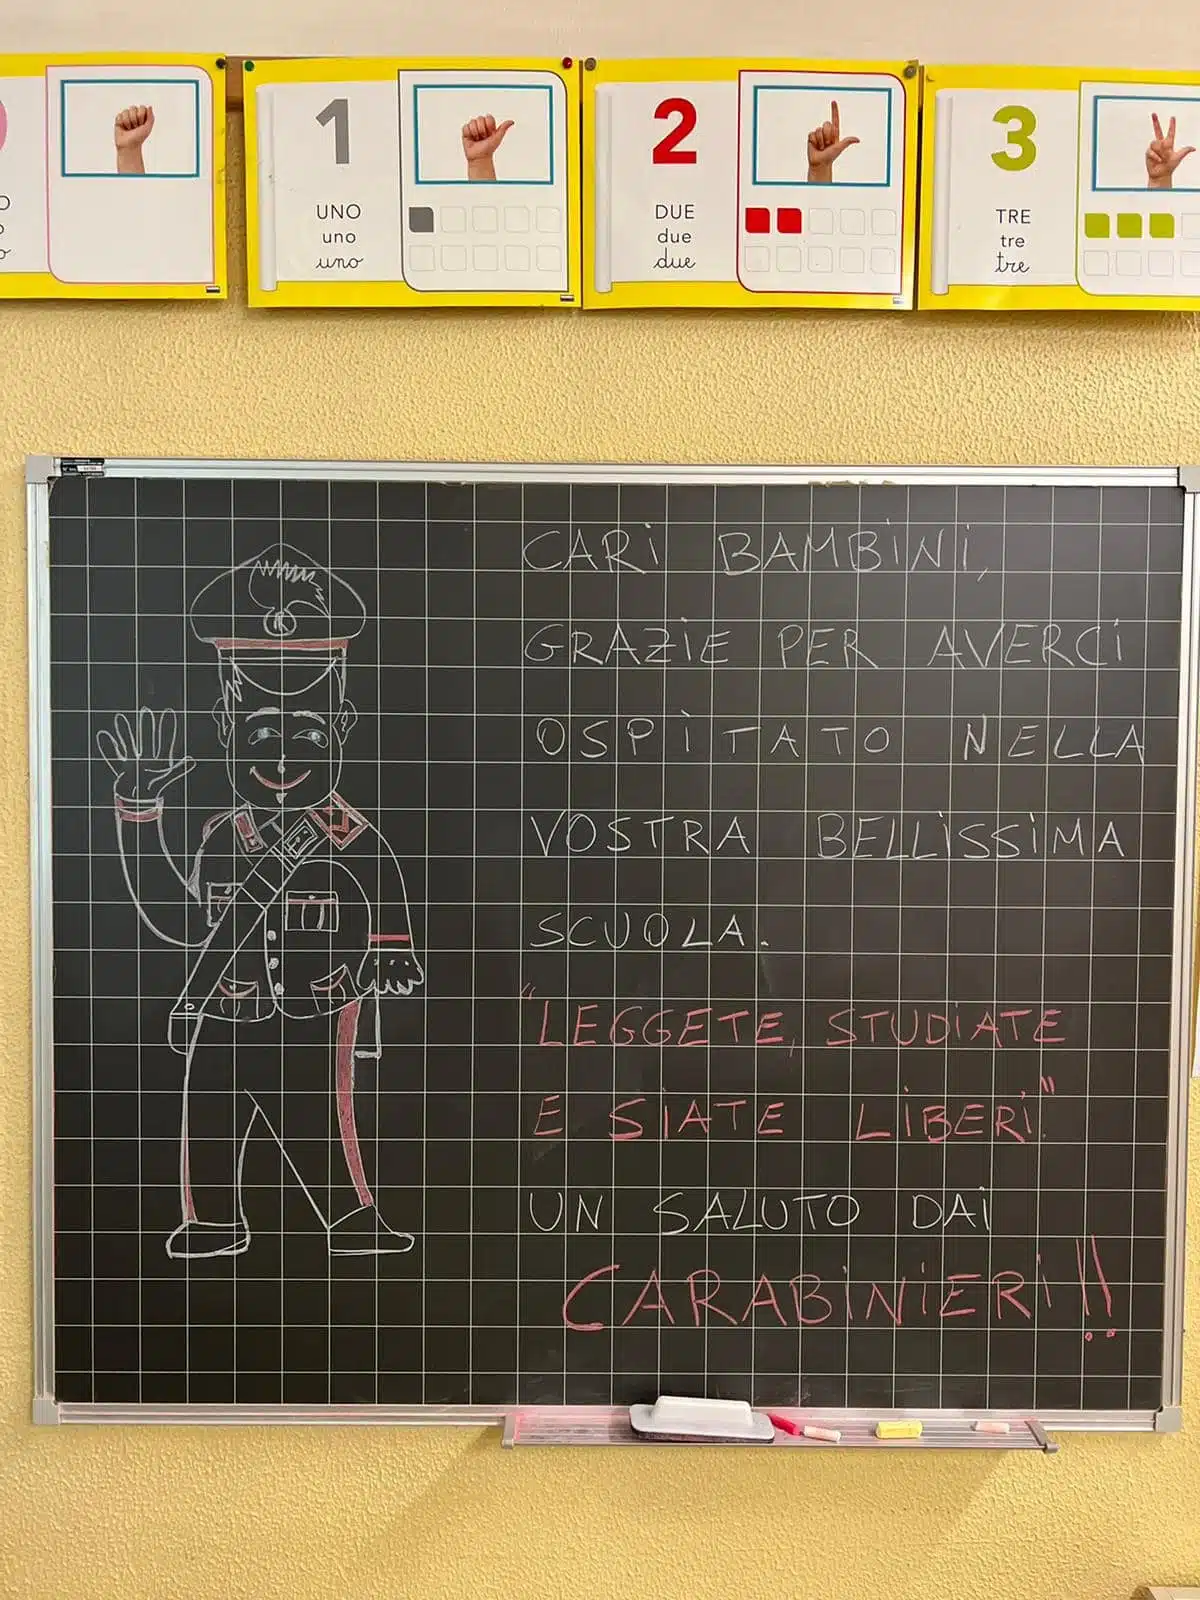 1
UNO
uno
uno
2
DUE
due
due
3
TRE
tre
tre
CARI BAMBINI,
GRAZIE PER AVERCI
OSPITATO NELLA
VOSTRA BELLISSIMA
SCUOLA.
"LEGGETE, STUDIATE
E SIATE LIBERI."
UN SALUTO DAI
CARABINIERI!!